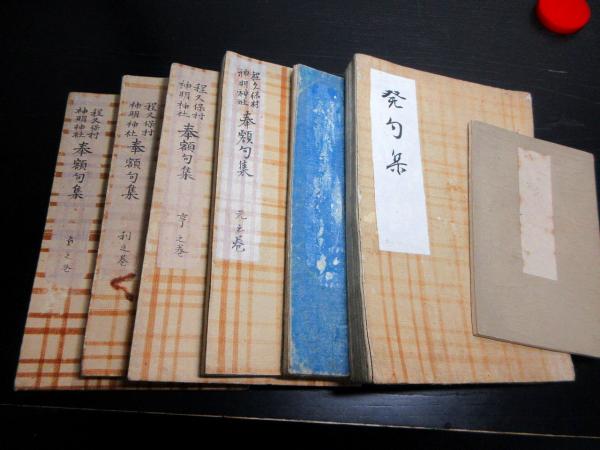 発句集
程久保村
神明神社
奉額句集
元之巻
程久保村
神明神社
奉額句集
亨之巻
程久保村
神明神社
奉額句集
利之巻
程久保村
神明神社
奉額句集
之巻